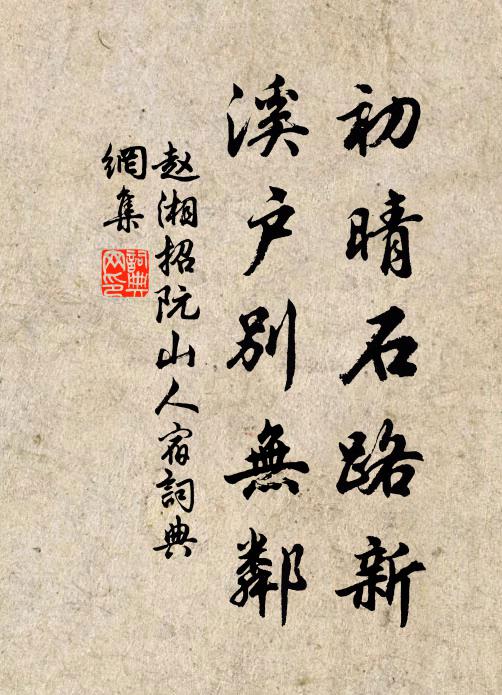 初晴石路新
溪户別無鄰
赵湘招阮山人宿詞典
網集
詞典
网印